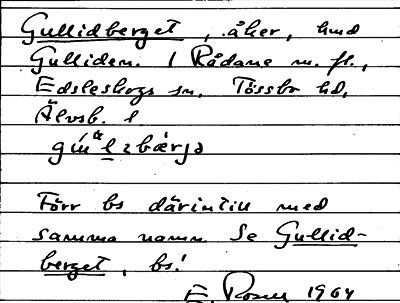 Gullidberget, åker, hmd
Gulliden. 1 Rådane m. fl.,
Edsleskogs sn, Tössbo hd,
Älvsb. l
Förr bs därintill med
samma namn. Se Gullid-
berget, bs!
E. Rosell 1964